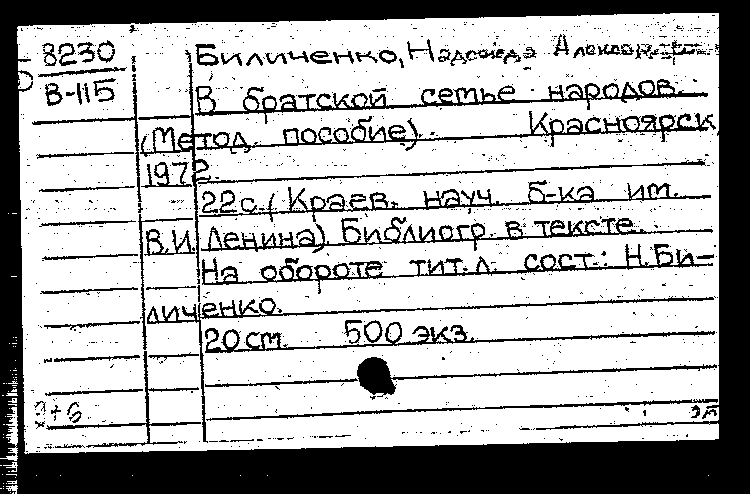 8230
В-115
Биличенко, Надежда Александровна
В братской семье народов.
(Метод. пособие). Красноярск,
1972.
22с. (Краев. науч. б-ка им.
В.И. Ленина). Библиогр. в тексте.
На обороте тит.л. сост.: Н.Би-
личенко.
20см. 500 экз.